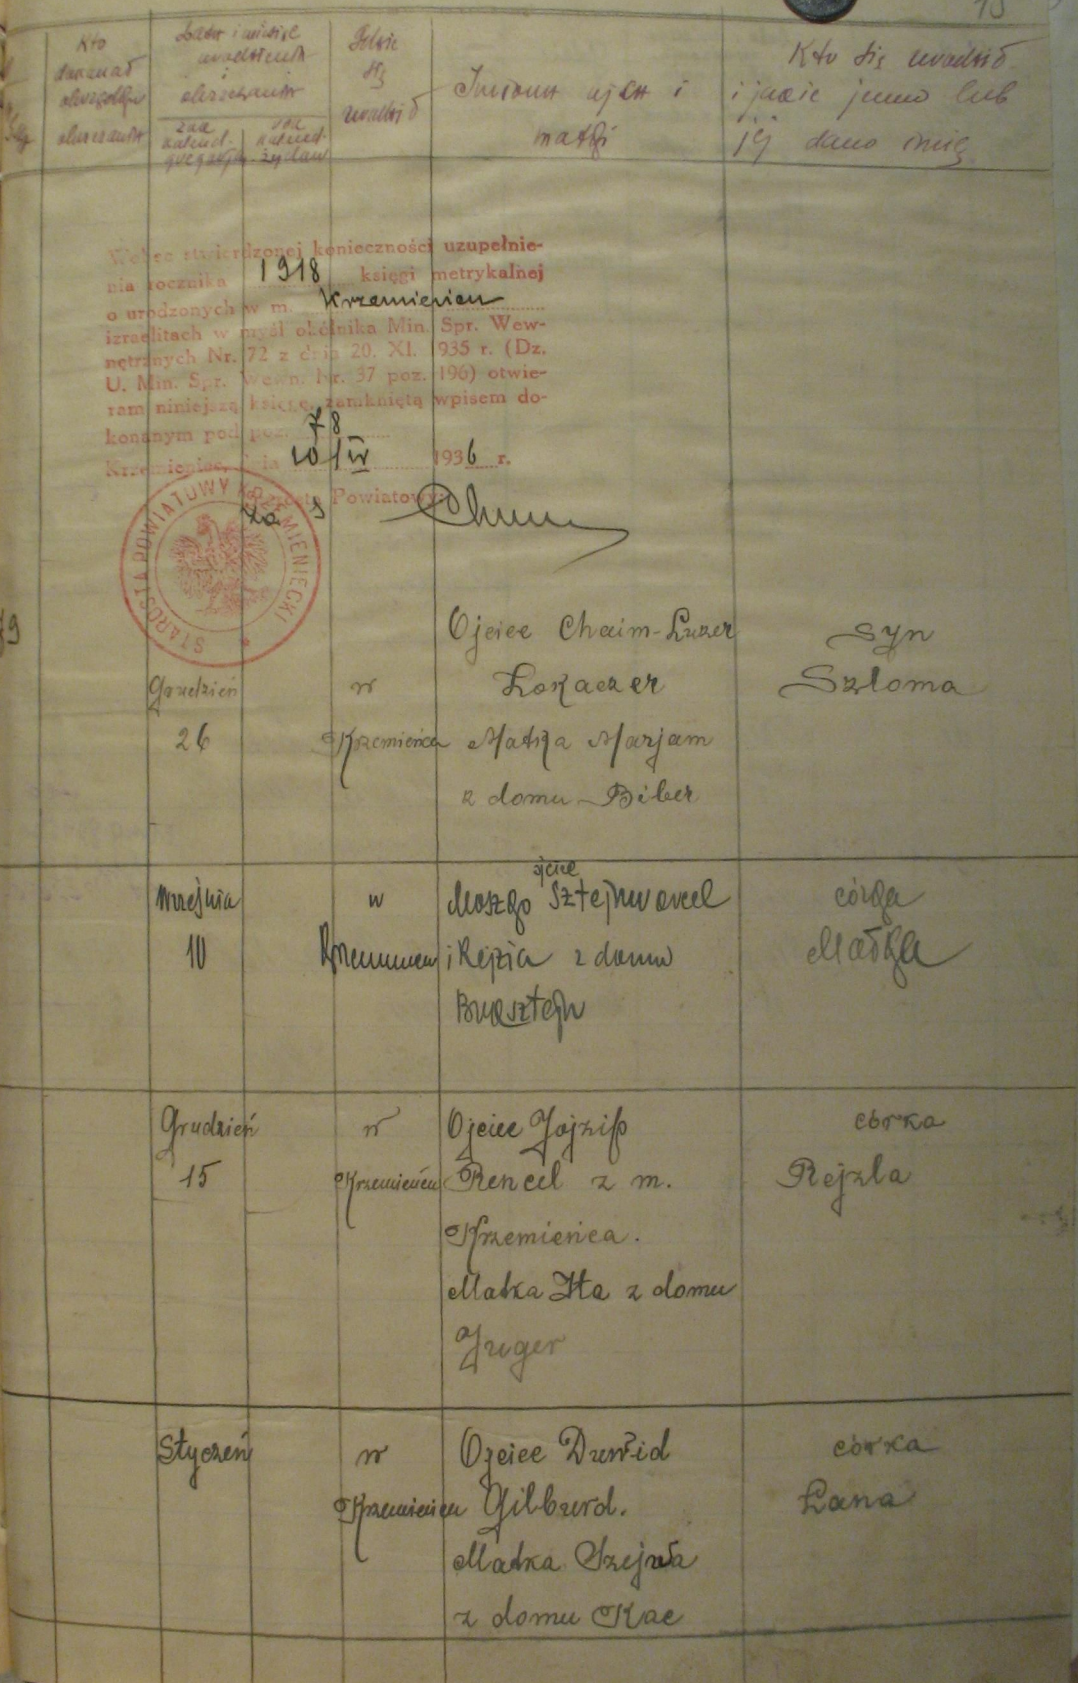 15
Kto
dokonał
obrzędów
obrzezania
Data i miesiąc
urodzenia
i
obrzezania
za
kalend.
za
kalend.
żydow
Gdzie
się
urodził
Imiona ojca i
matki
Kto się urodził
i jakie jemu lub
jej dano imię
Wobec stwierdzonej konieczności uzupełnie-
nia rocznika 1918 księgi metrykalnej
o urodzonych w m. Krzemieńcu
izraelitach w myśl okólnika Min. Spr. Wew-
nętrznych Nr. 72 z dnia 20. XI. 1935 r. (Dz.
U. Min. Spr. Wewn. Nr. 37 poz. 196) otwie-
ram niniejszą księgę, zamkniętą wpisem do-
konanym pod poz. 78
Krzemieniec, dnia 10/IV 1936 r.
za Starosta Powiatowy:
STAROSTA POWIATOWY KRZEMIENIECKI
79
Grudzień
26
w
Krzemieńcu
Ojciec Chaim-Luzer
Łokaczer
Matka Marjam
z domu Biber
syn
Szloma
Września
10
w
Krzemieńcu
ojciec
Moszko Sztejnwarcel
i Rejzia z domu
córka
Małka
Grudzień
15
w
Krzemieńcu
Ojciec Jojzif
Rencel z m.
Krzemieńca.
Matka Ita z domu
córka
Rejzla
Styczeń
w
Krzemieńcu
Ojciec Duwid
Gilburd.
Matka Szejwa
z domu Kac
córka
Łana